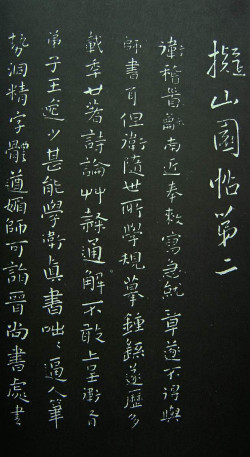 擬山園帖第二
衛稽首和南近奉敕寫急就章遂不得與
師書耳但衛隨世所學規摹鍾繇遂歷多
載年廿著詩論艸隸通解不敢上呈衛有
弟子王逸少甚能學衛眞書咄〻逼人筆
勢洞精字體遒媚師可詣晉尚書處書